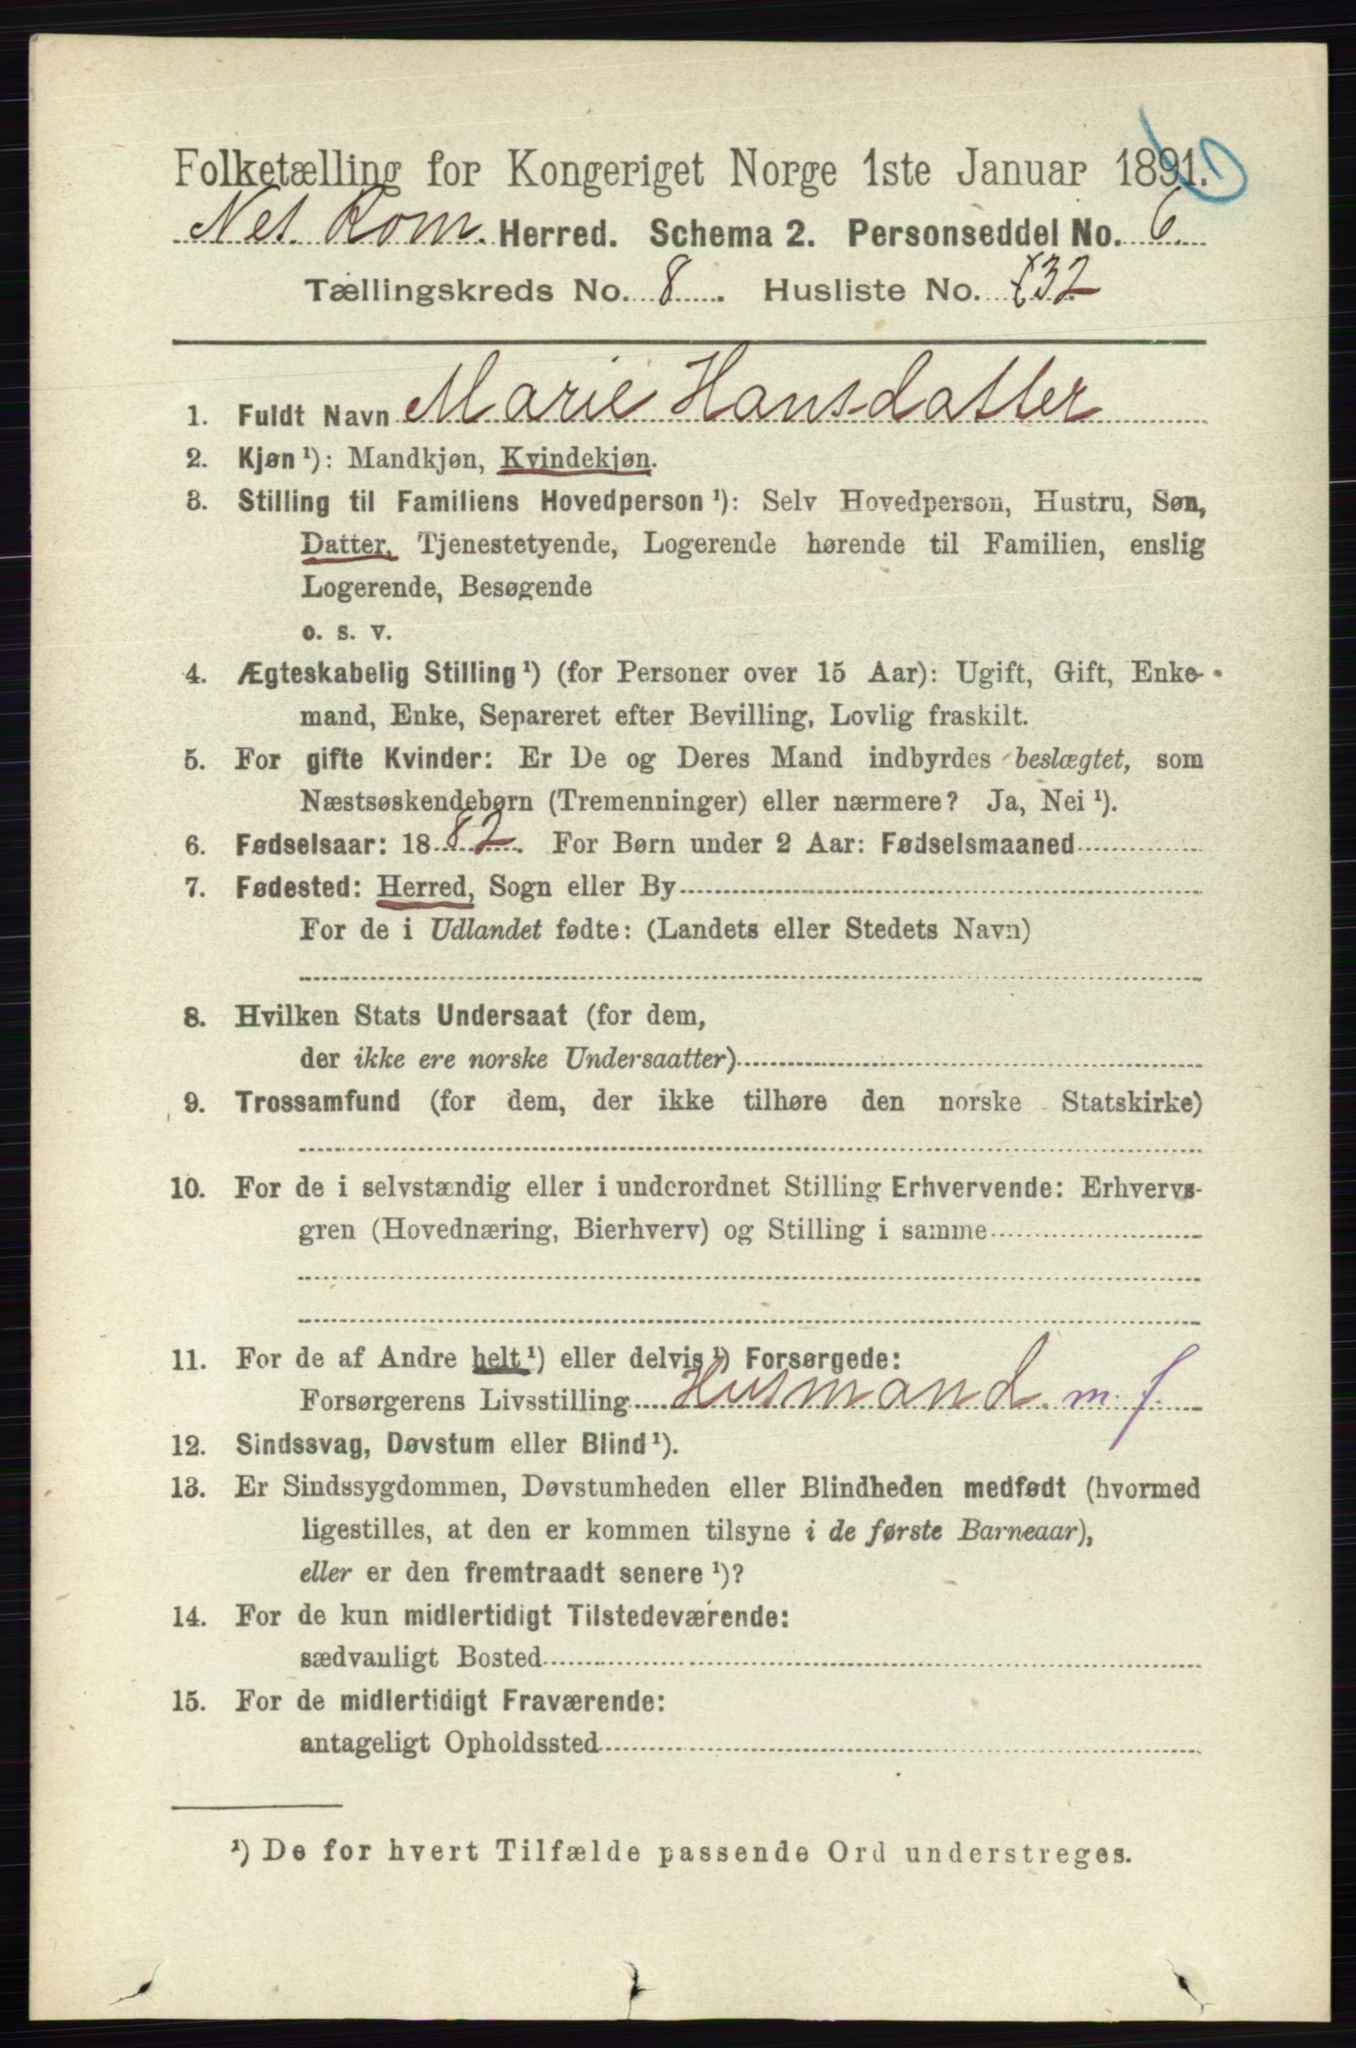 Folketælling for Kongeriget Norge 1ste Januar 1891.
Nes. Rom. Herred. Schema 2. Personseddel No. 6.
Tællingskreds No. 8. Husliste No. 132
1. Fuldt Navn Marie Hansdatter
2. Kjøn ¹): Mandkjøn, Kvindekjøn.
3. Stilling til Familiens Hovedperson ¹): Selv Hovedperson, Hustru, Søn,
Datter, Tjenestetyende, Logerende hørende til Familien, enslig
Logerende, Besøgende
o. s. v.
4. Ægteskabelig Stilling ¹) (for Personer over 15 Aar): Ugift, Gift, Enke-
mand, Enke, Separeret efter Bevilling, Lovlig fraskilt.
5. For gifte Kvinder: Er De og Deres Mand indbyrdes beslægtet, som
Næstsøskendebørn (Tremenninger) eller nærmere? Ja, Nei ¹).
6. Fødselsaar: 1882. For Børn under 2 Aar: Fødselsmaaned
7. Fødested: Herred, Sogn eller By
For de i Udlandet fødte: (Landets eller Stedets Navn)
8. Hvilken Stats Undersaat (for dem,
der ikke ere norske Undersaatter)
9. Trossamfund (for dem, der ikke tilhøre den norske Statskirke)
10. For de i selvstændig eller i underordnet Stilling Erhvervende: Erhvervs-
gren (Hovednæring, Bierhverv) og Stilling i samme
11. For de af Andre helt ¹) eller delvis ¹) Forsørgede:
Forsørgerens Livsstilling Husmand m. f.
12. Sindssvag, Døvstum eller Blind ¹).
13. Er Sindssygdommen, Døvstumheden eller Blindheden medfødt (hvormed
ligestilles, at den er kommen tilsyne i de første Barneaar),
eller er den fremtraadt senere ¹)?
14. For de kun midlertidigt Tilstedeværende:
sædvanligt Bosted
15. For de midlertidigt Fraværende:
antageligt Opholdssted
¹) De for hvert Tilfælde passende Ord understreges.